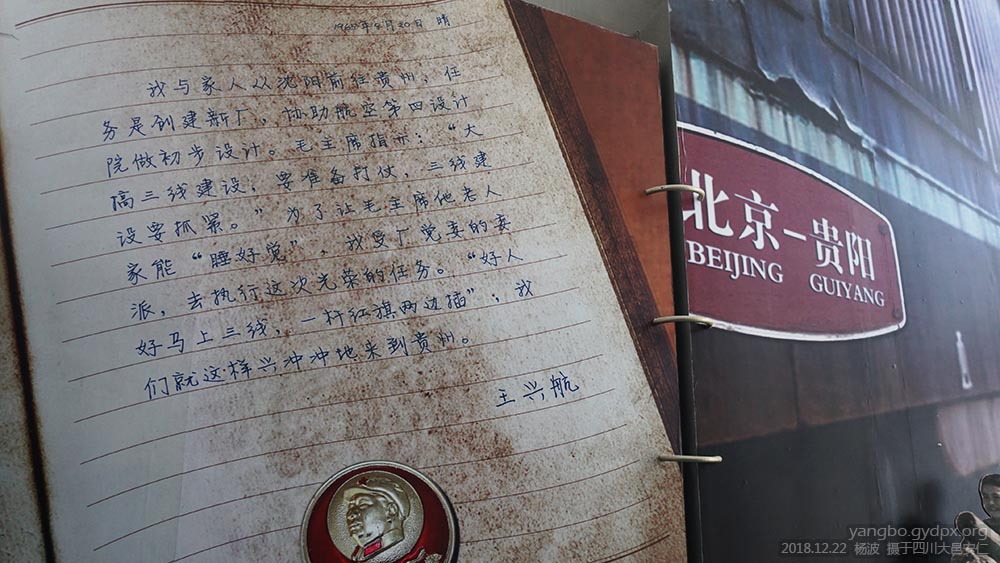 1965年8月20日 晴
我与家人从沈阳前往贵州，任
务是创建新厂，协助航空第四设计
院做初步设计。毛主席指示：“大
高三线建设，要准备打仗，三线建
设要抓紧。”为了让毛主席他老人
家能“睡好觉”，我受厂党委的委
派，去执行这次光荣的任务。“好人
好马上三线，一杆红旗两边插”，我
们就这样兴冲冲地来到贵州。
王兴航
北京－贵阳
BEIJING GUIYANG
yangbo.gydpx.org
2018.12.22 杨波 摄于四川大邑安仁